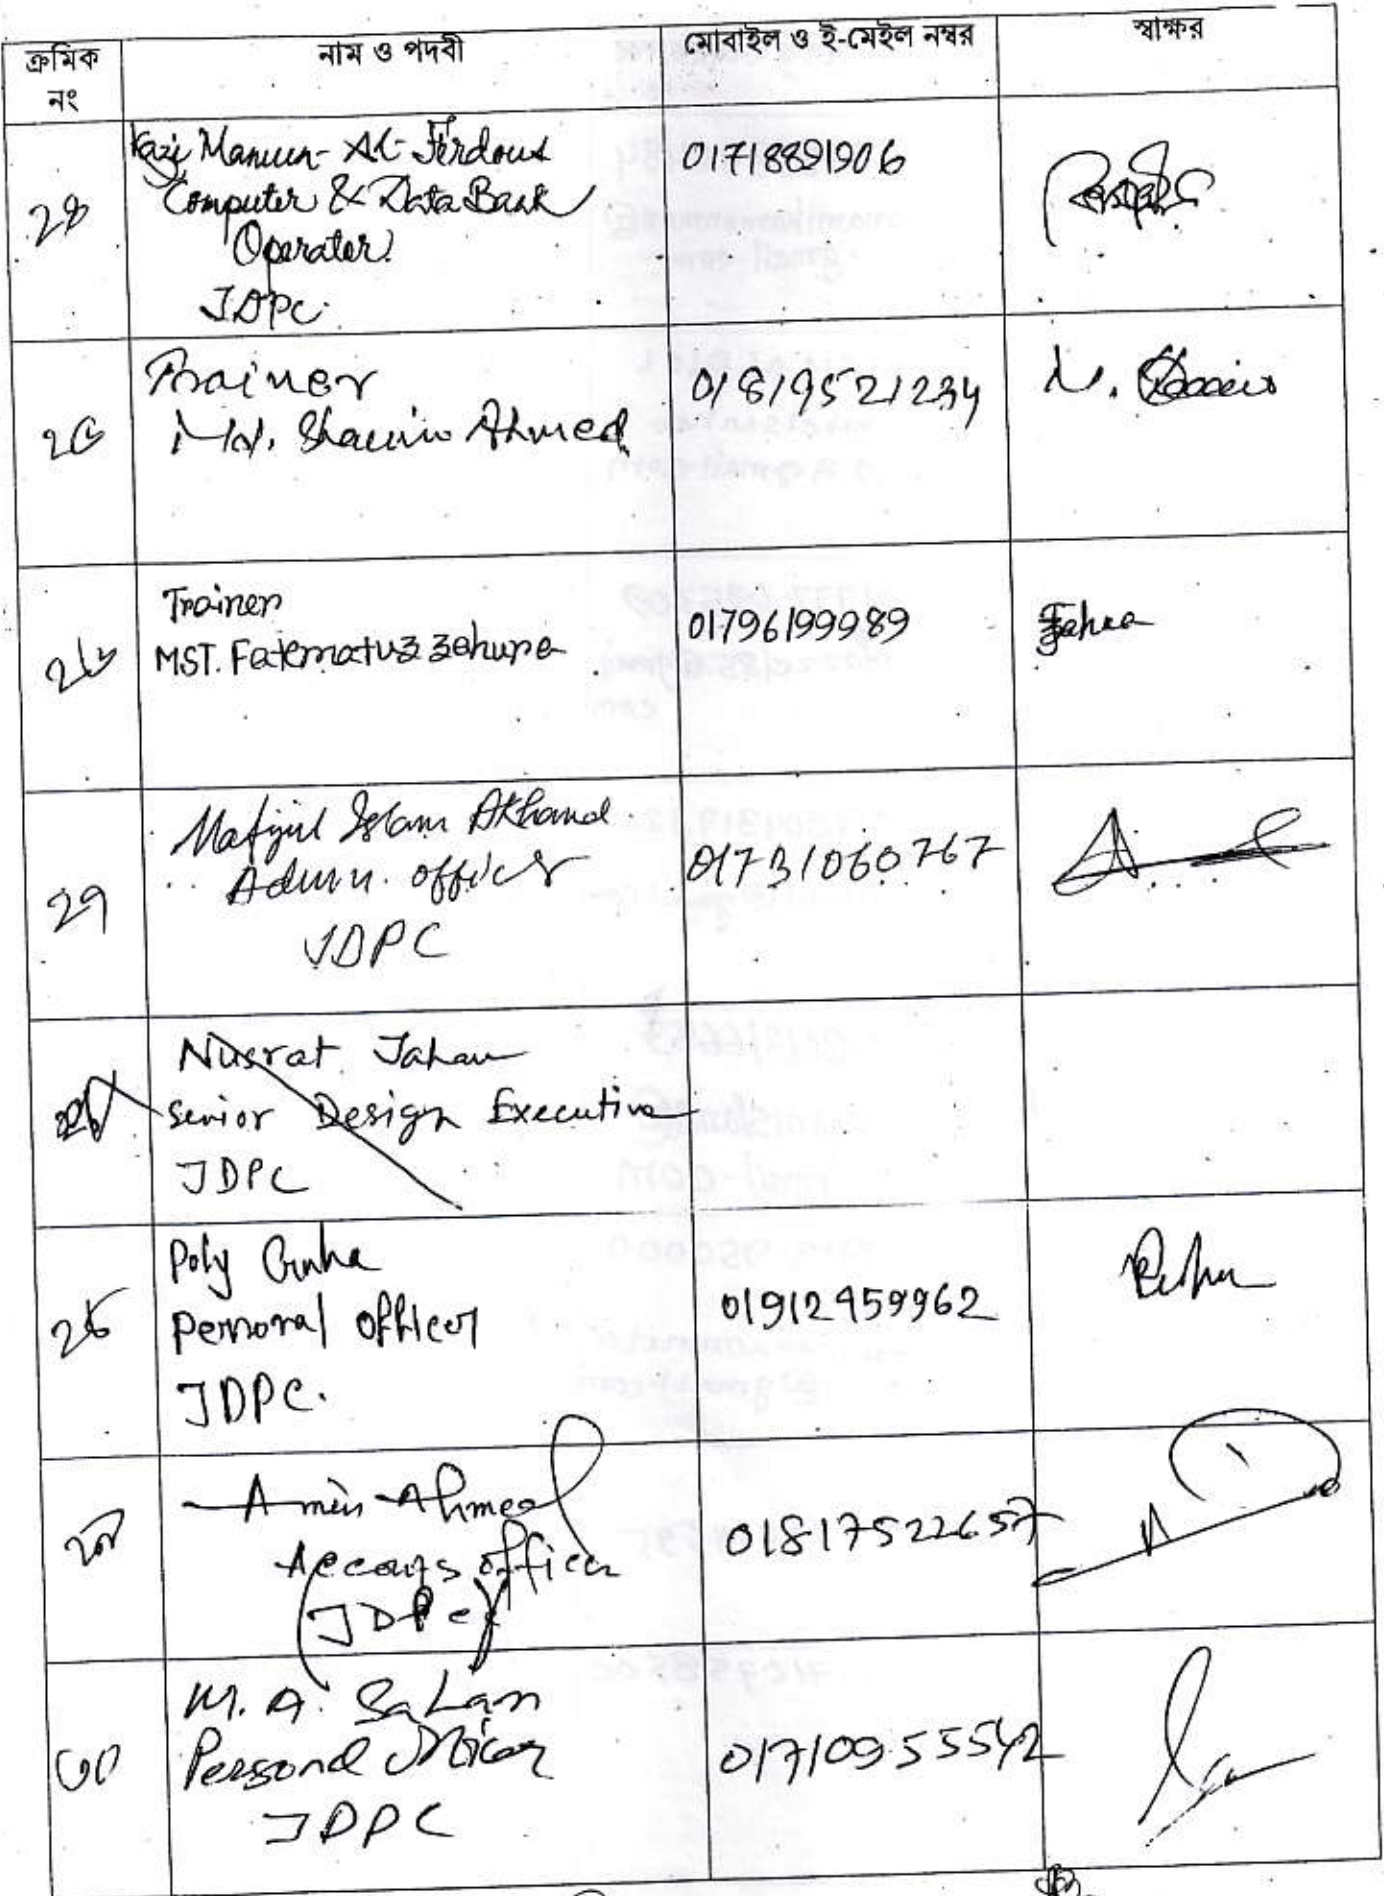 ক্রমিক নং	নাম ও পদবী	মোবাইল ও ই-মেইল নম্বর	স্বাক্ষর
২৪
Kazi Mamun-Al-Ferdous
Computer & Data Bank
Operater
JDPC
01718891906
২৫
Trainer
Md. Shamim Ahmed
01819521234
২৬
Trainer
MST. Fatematuz zohura
01796199989
২৭
Mafijul Islam Akhand
Admn. officer
JDPC
01731060767
Nusrat Jahan
Senior Design Executive
JDPC
২৮
Poly Guha
Personal officer
JDPC.
01912959962
২৯
Amin Ahmed
Accouts officer
(JDPC)
01817522657
৩০
M. A. Salam
Personal Officer
JDPC
01710955542